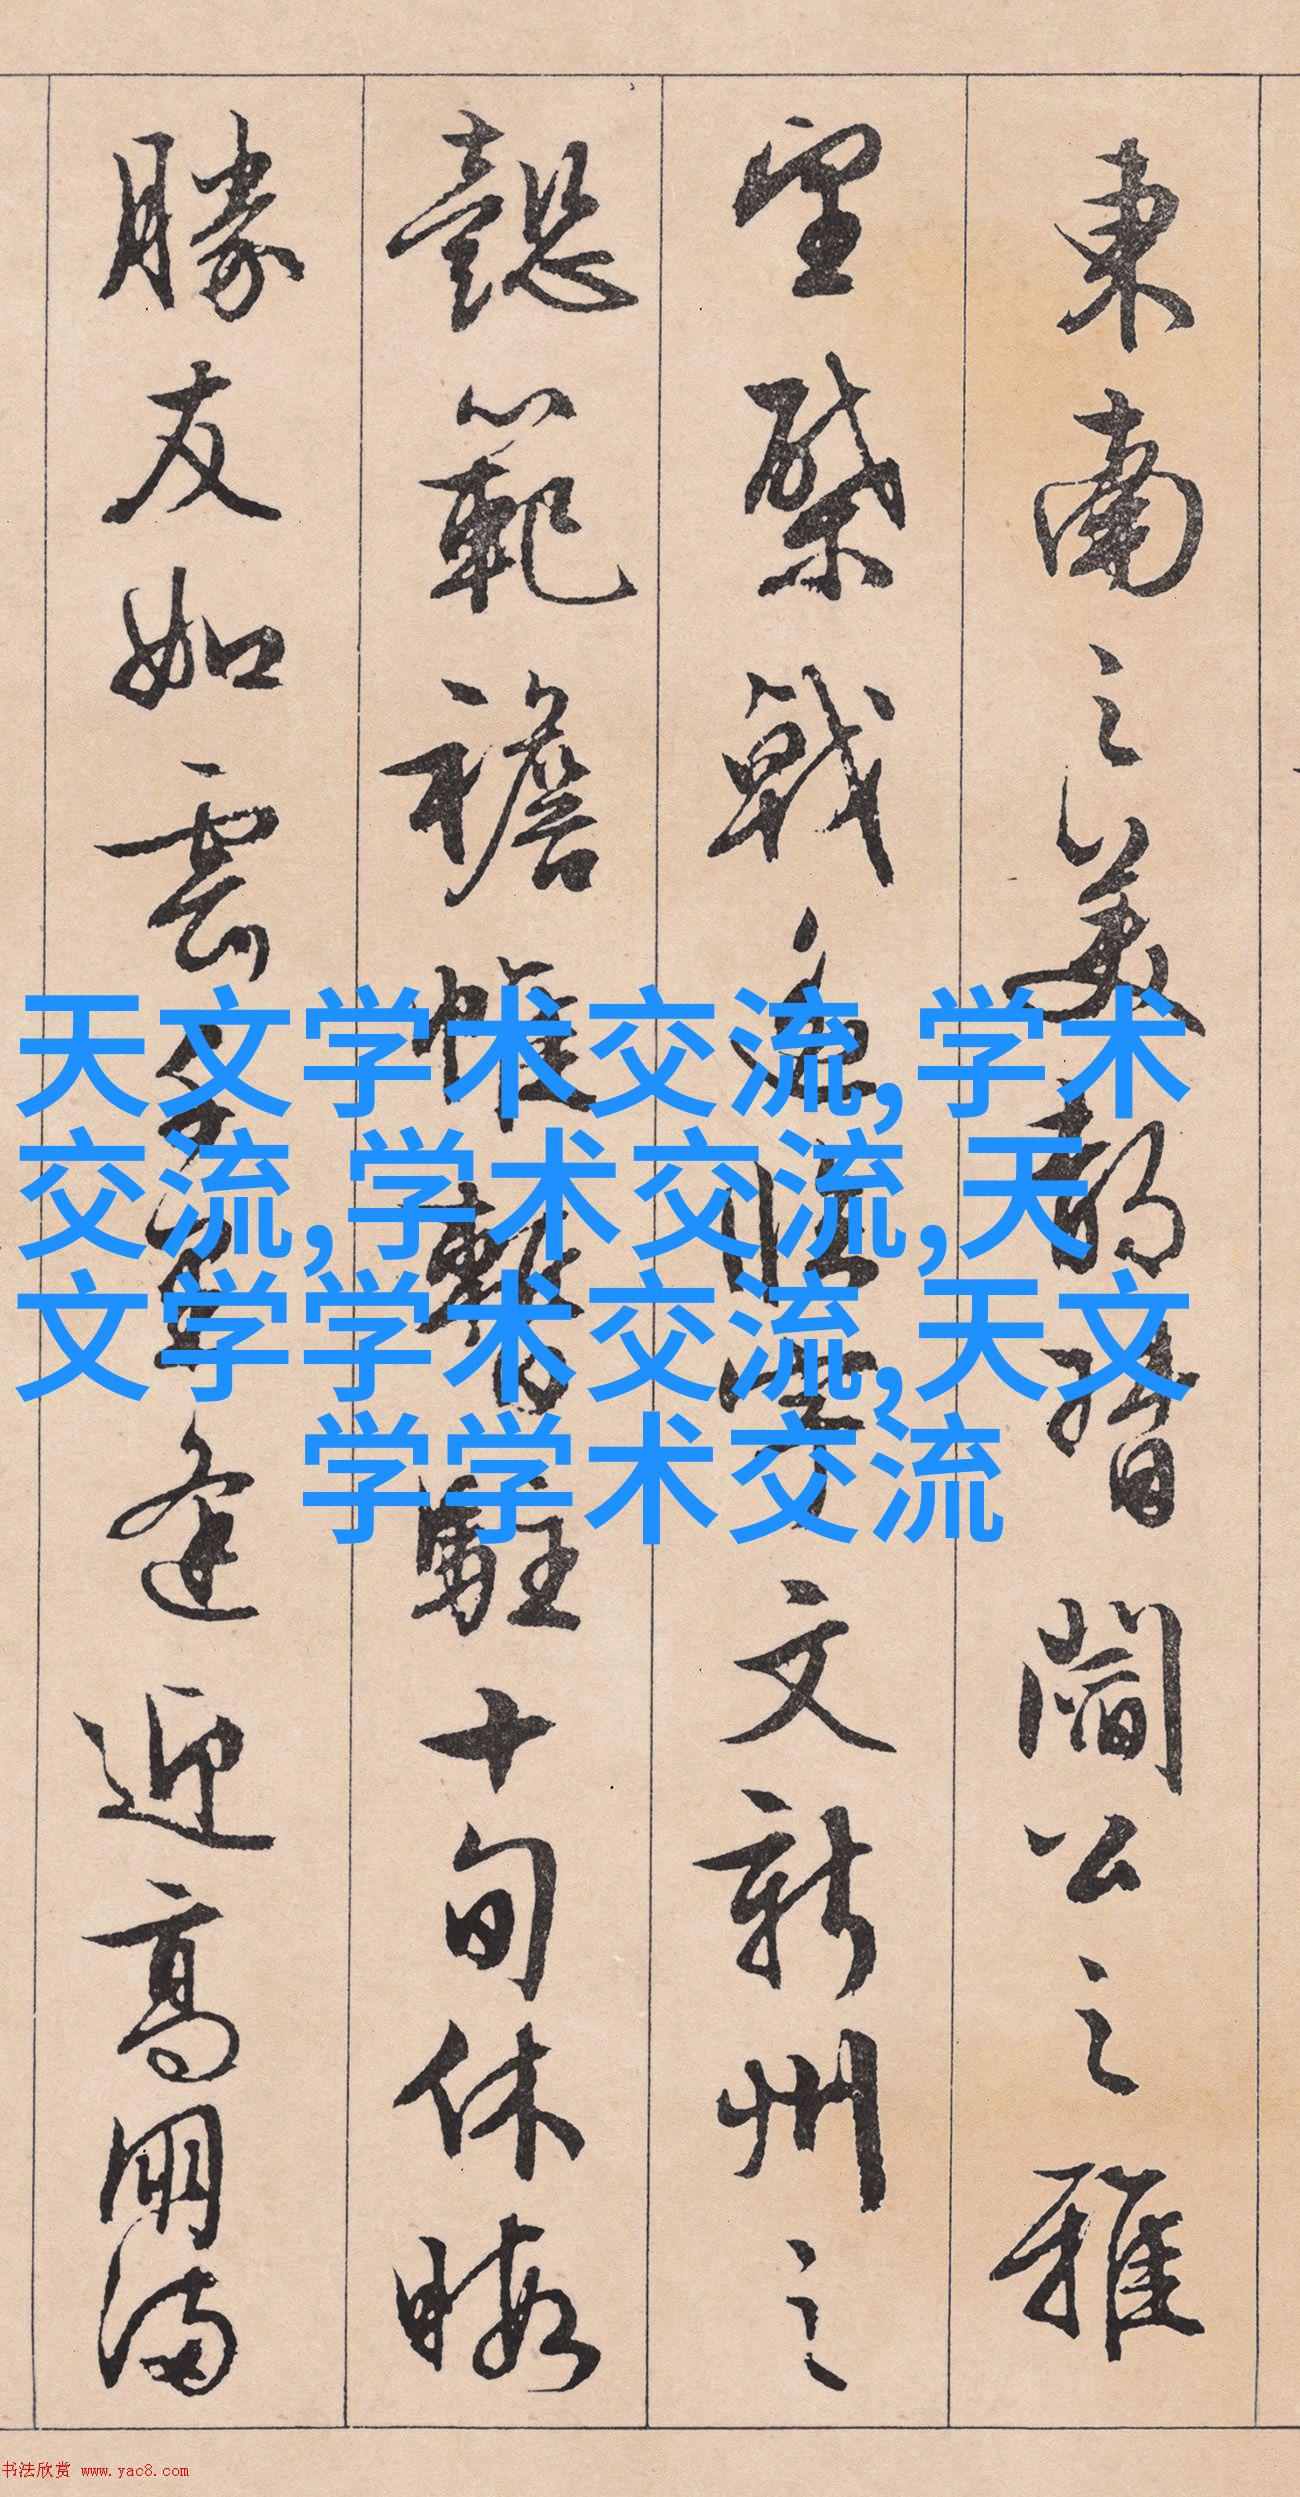 東南之美都督閻公之雅
望棨戟遥臨宇文新州之
懿範襜帷暫駐十旬休暇
勝友如雲千里逢迎高朋滿
天文学术交流,学术
交流,学术交流,天
文学学术交流,天文
学学术交流
书法欣赏 www.yac8.com